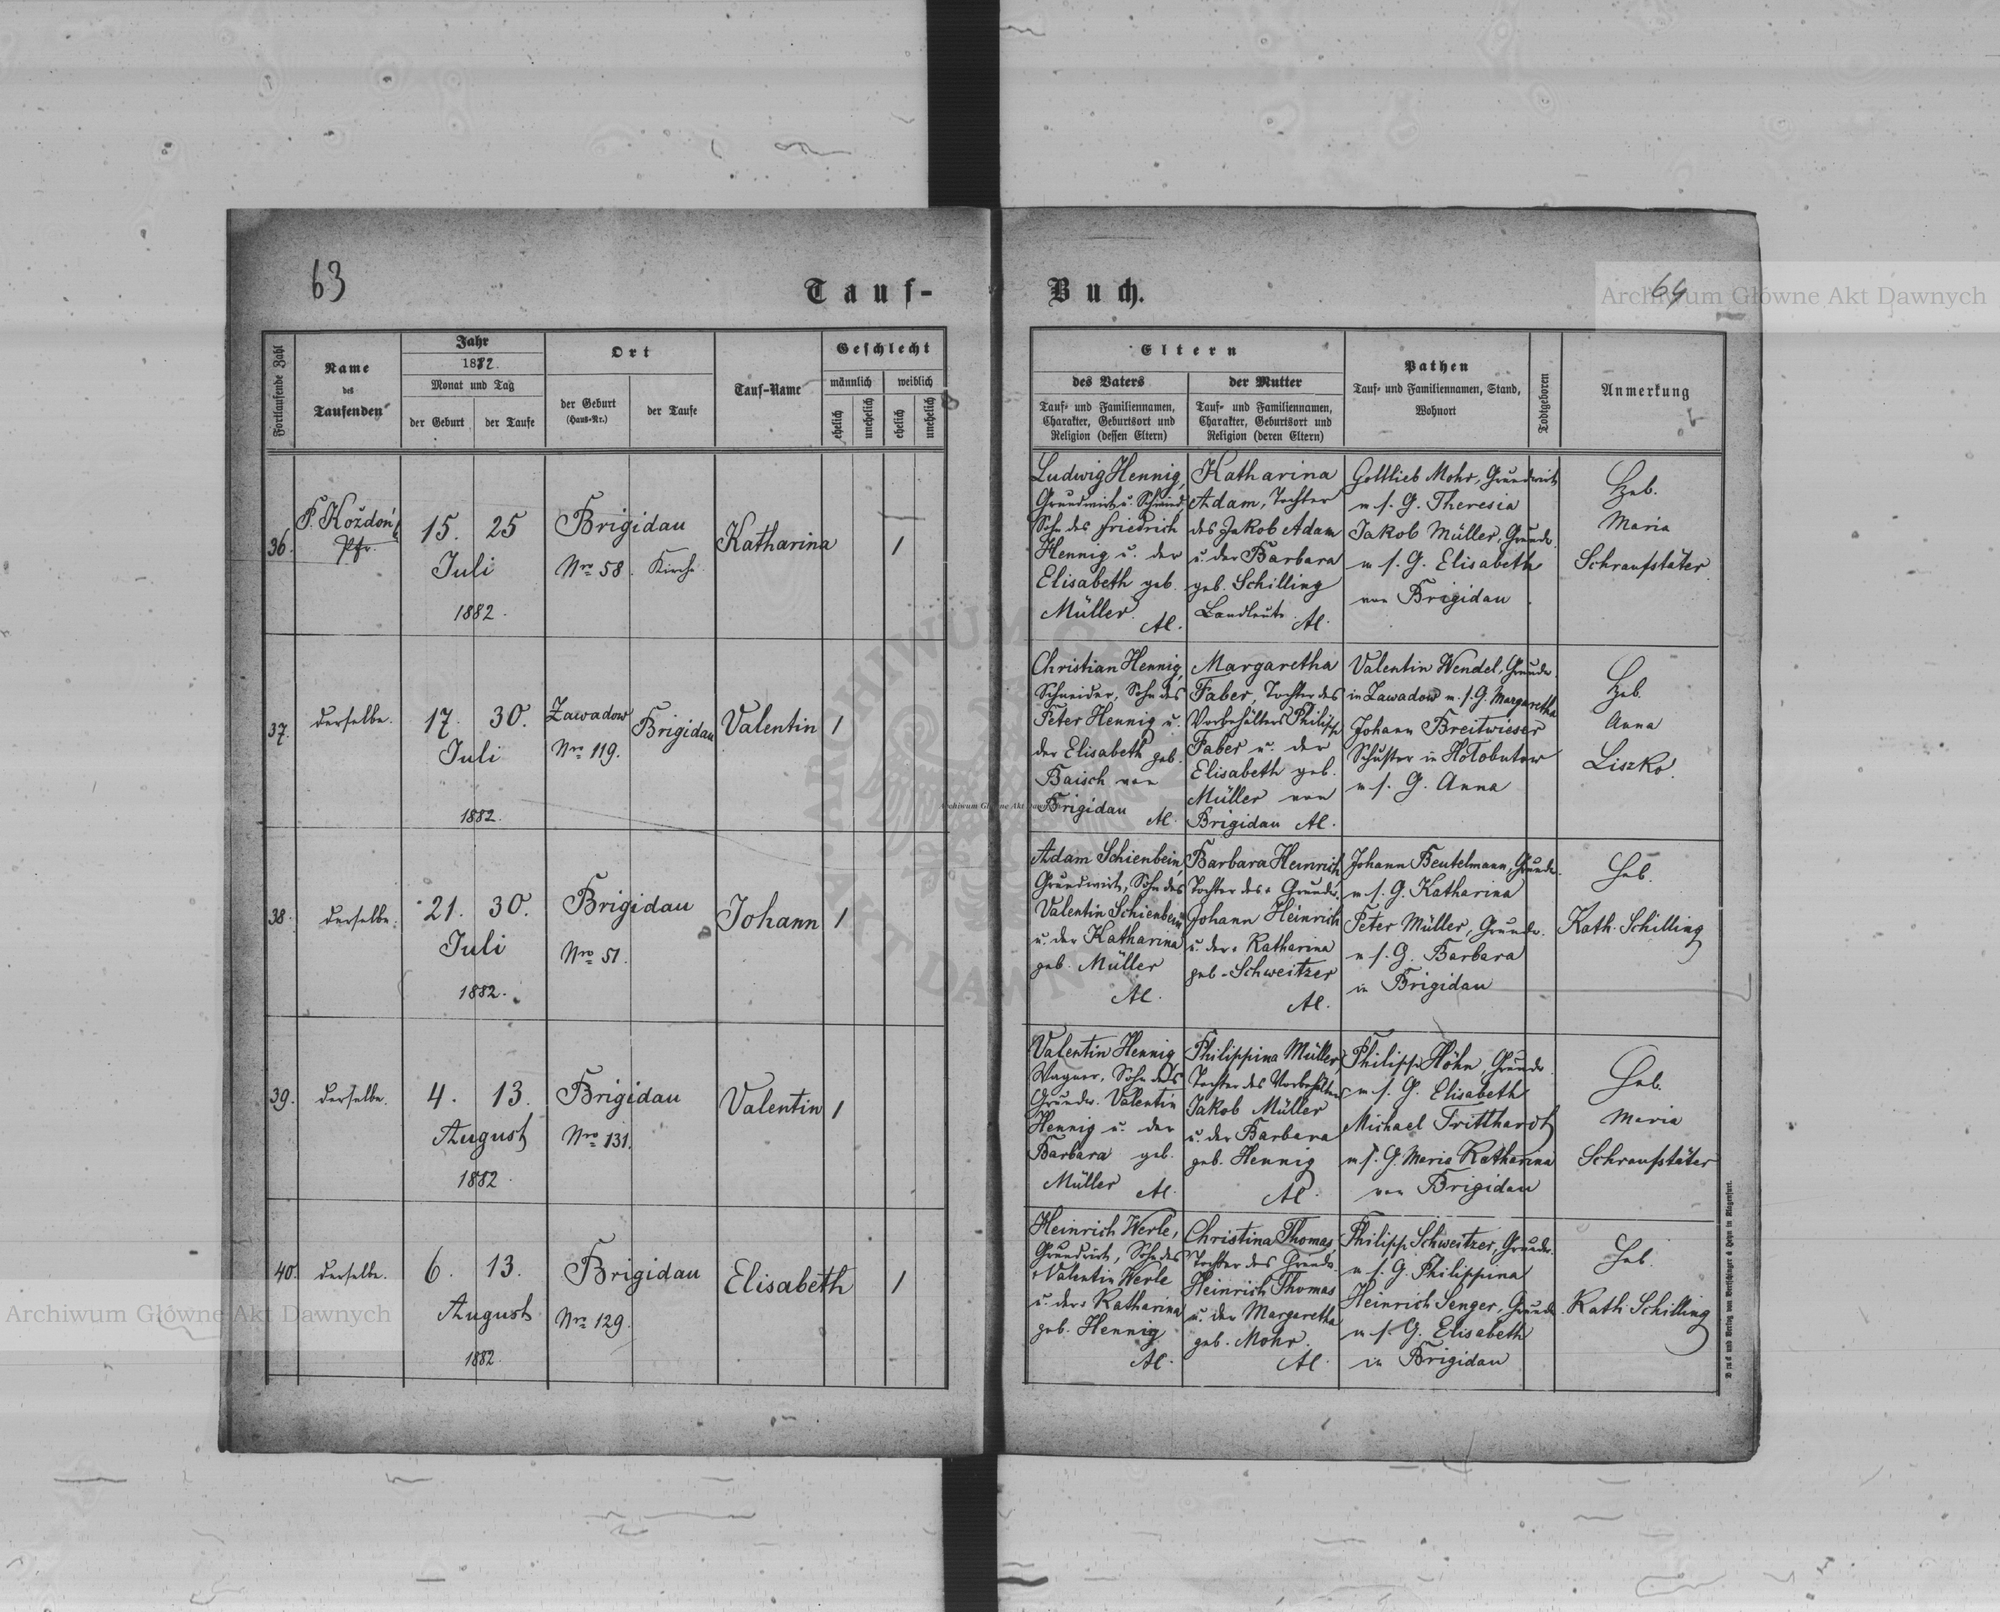 63
Tauf-
Buch.
64
Archiwum Główne Akt Dawnych
Fortlaufende Zahl
Name
des
Taufenden
Jahr
1882.
Monat und Tag
der Geburt
der Taufe
Ort
der Geburt
(Haus-Nr.)
der Taufe
Tauf-Name
Geschlecht
männlich
weiblich
ehelich
unehelich
ehelich
unehelich
Eltern
des Vaters
Tauf- und Familiennamen,
Charakter, Geburtsort und
Religion (dessen Eltern)
der Mutter
Tauf- und Familiennamen,
Charakter, Geburtsort und
Religion (deren Eltern)
Pathen
Tauf- und Familiennamen, Stand,
Wohnort
Todtgeboren
Anmerkung
36.
P. Koždoń
Pfr.
15.
25
Juli
1882.
Brigidau
Nro 58.
Kirche
Katharina
1
Ludwig Hennig,
Grundwirt u. Schmied
Sohn des Friedrich
Hennig u. der
Elisabeth geb.
Müller.
Al.
Katharina
Adam, Tochter
des Jakob Adam
u. der Barbara
geb. Schilling
Landleute.
Al.
Gottlieb Mohr, Grundwirt
m s. G. Theresia
Jakob Müller, Grundw.
m s. G. Elisabeth
von Brigidau
Heb.
Maria
Schraufstäter.
37.
derselbe.
17.
30.
Juli
1882.
Zawadow
Nro 119.
Brigidau
Valentin
1
Christian Hennig,
Schneider, Sohn des
Peter Hennig u.
der Elisabeth geb.
Baisch von
Brigidau
Al.
Margaretha
Faber, Tochter des
Vorbehälters Philipp
Faber u. der
Elisabeth geb.
Müller von
Brigidau Al.
Valentin Wendel, Grundw.
in Zawadow m. s. G. Margaretha
Johann Breitwieser
Schuster in Hołobutow
m s. G. Anna
Heb.
Anna
Liszko.
38.
derselbe.
21.
30.
Juli
1882.
Brigidau
Nro 51.
Johann
1
Adam Schienbein,
Grundwirt, Sohn des
Valentin Schienbein
u. der Katharina
geb. Müller
Al.
Barbara Heinrich
Tochter des + Grundw.
Johann Heinrich
u. der + Katharina
geb. Schweitzer
Al.
Johann Beutelmann, Grundw.
m s. G. Katharina
Peter Müller, Grundw.
m s. G. Barbara
in Brigidau
Heb.
Kath. Schilling
39.
derselbe.
4.
13.
August
1882.
Brigidau
Nro 131.
Valentin
1
Valentin Hennig
Wagner, Sohn des
Grundw. Valentin
Hennig u. der
Barbara geb.
Müller
Al.
Philippina Müller,
Tochter des Vorbehälters
Jakob Müller
u. der Barbara
geb. Hennig
Al.
Philipp Höhn, Grundw.
m s. G. Elisabeth
Michael Tritthardt
m s. G. Maria Katharina
von Brigidau
Heb.
Maria
Schraufstäter
40.
derselbe.
6.
13.
August
1882.
Brigidau
Nro 129.
Elisabeth
1
Heinrich Werle,
Grundwirt, Sohn des
+ Valentin Werle
u. der + Katharina
geb. Hennig
Al.
Christina Thomas,
Tochter des Grundw.
Heinrich Thomas
u. der Margaretha
geb. Mohr.
Al.
Philipp Schweitzer, Grundw.
m s. G. Philippina
Heinrich Senger, Grundw.
m s. G. Elisabeth
in Brigidau
Heb.
Kath. Schilling
Archiwum Główne Akt Dawnych
Archiwum Główne Akt Dawnych
ARCHIWUM GŁÓWNE AKT DAWNYCH